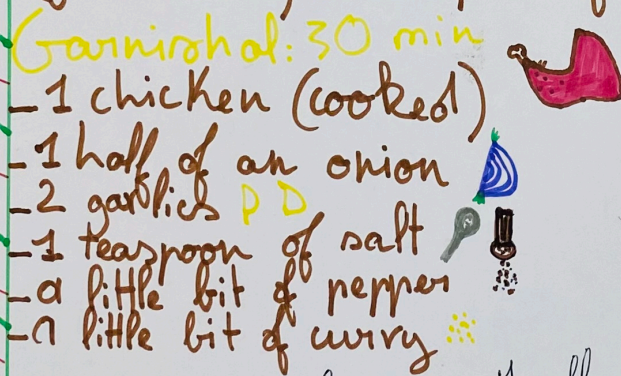 Garnishal: 30 min
- 1 chicken (cooked)
- 1 half of an onion
- 2 garlics
- 1 teaspoon of salt
- a little bit of pepper
- a little bit of curry